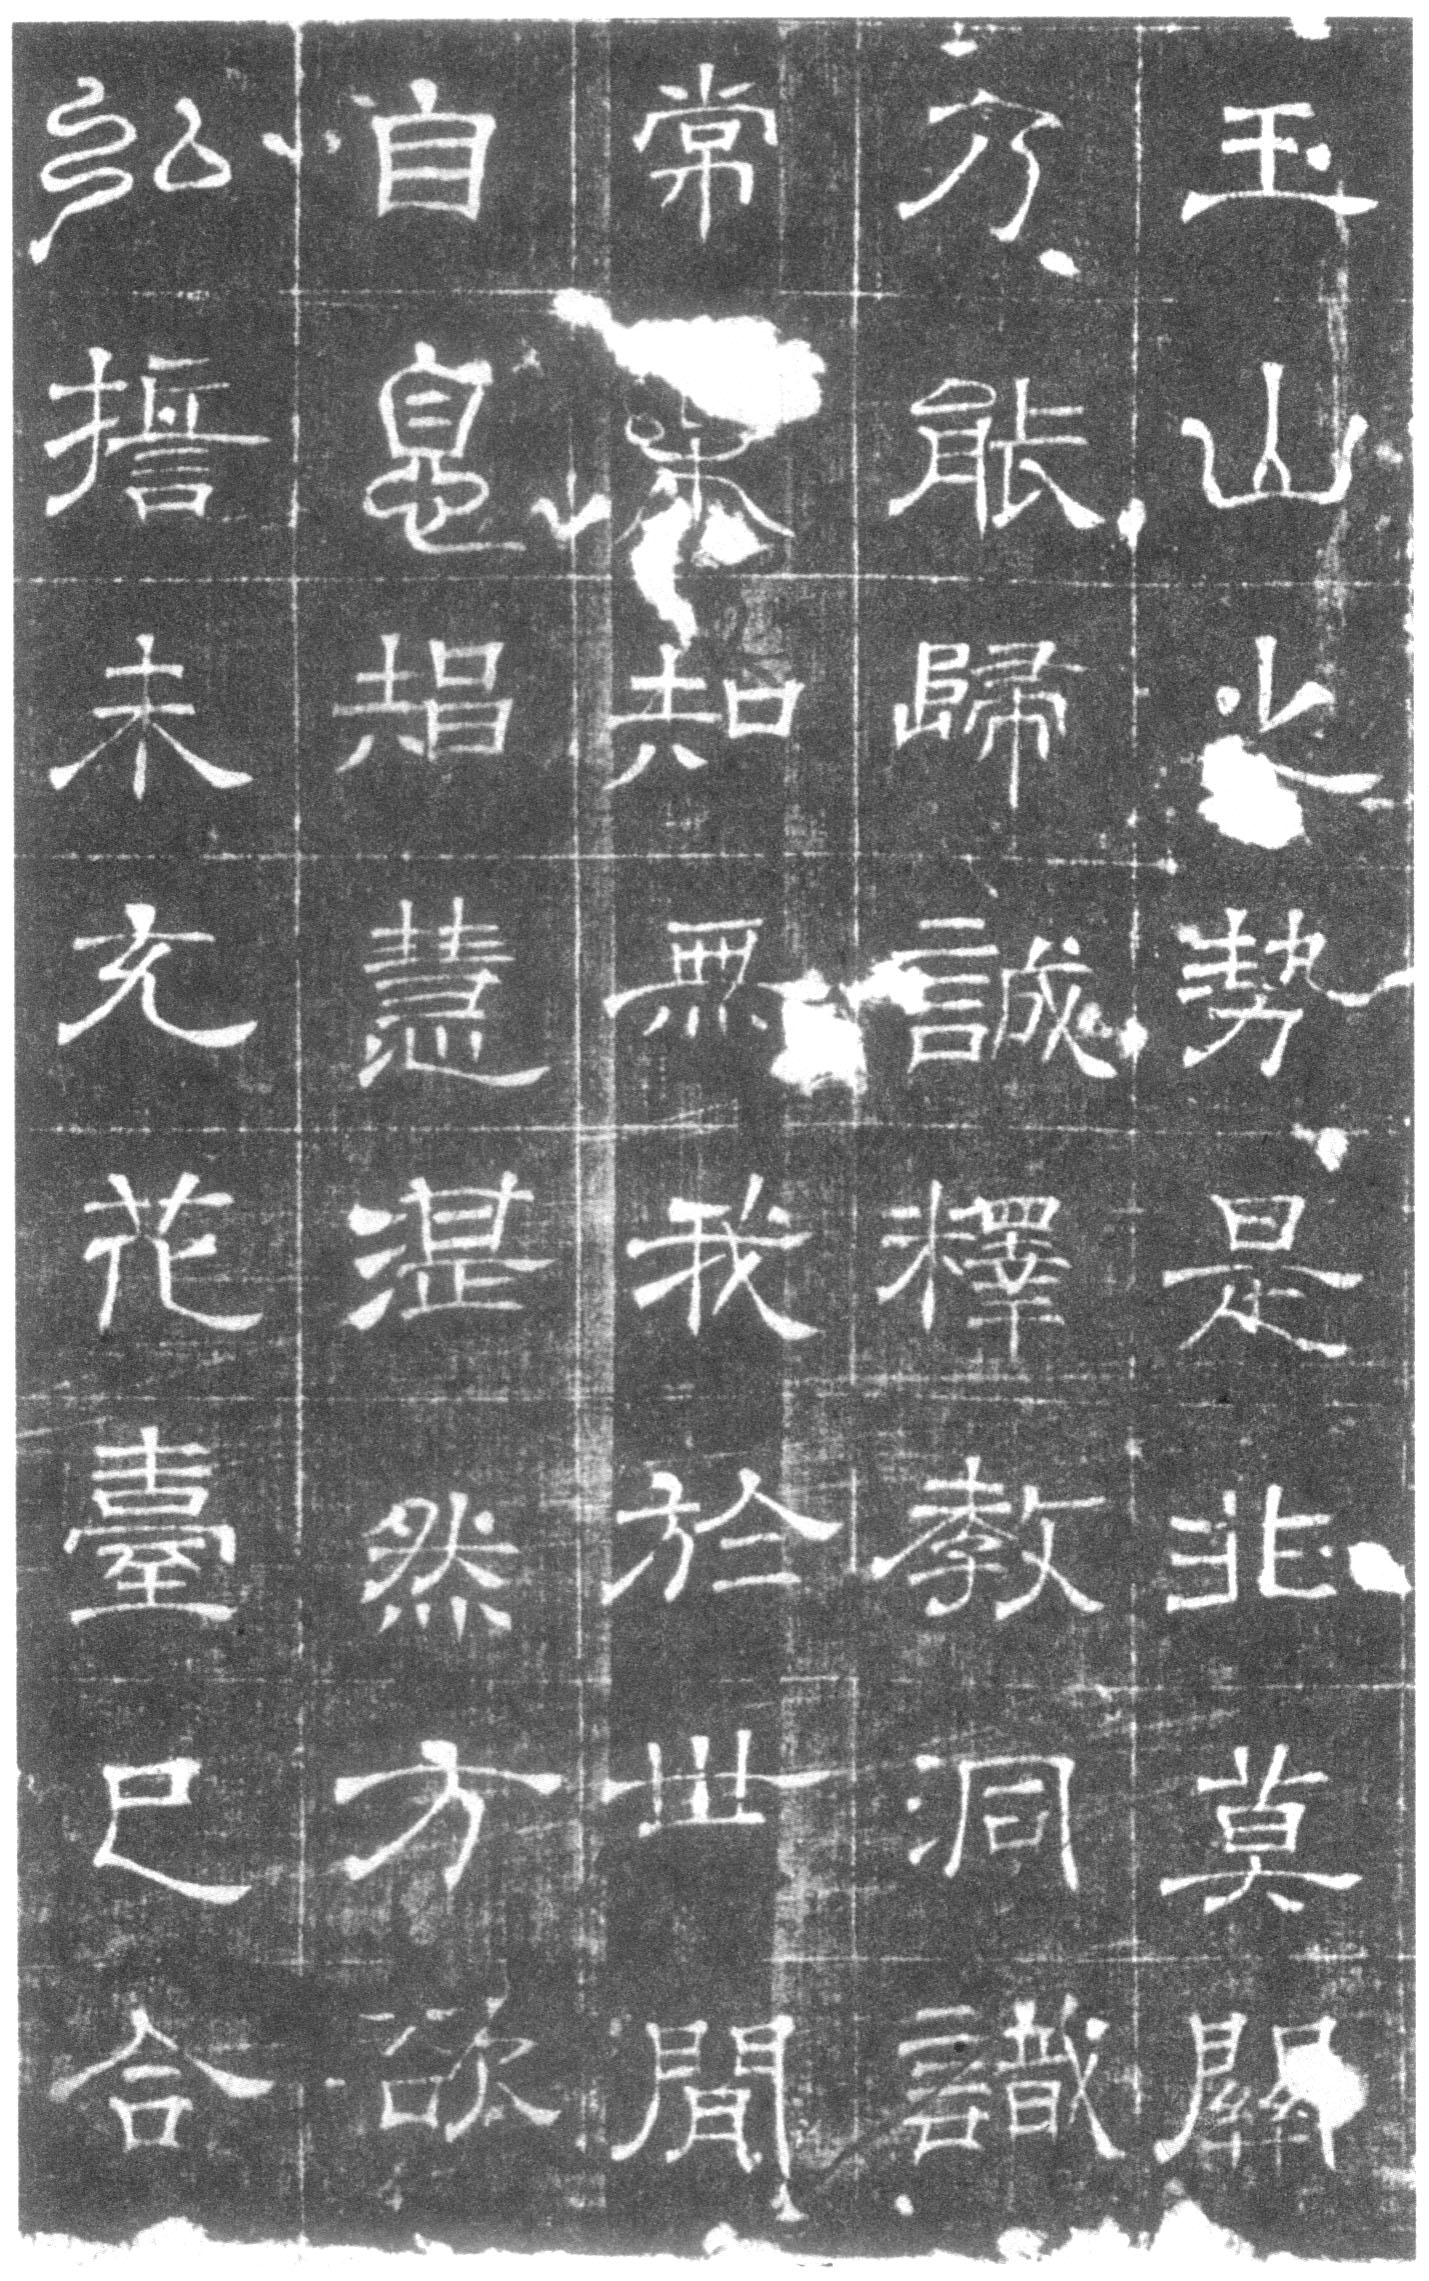 玉山之勢是非莫關
乃能歸誠釋教洞識
常知無我於世間
自息智慧湛然方欲
弘誓未充花臺已合